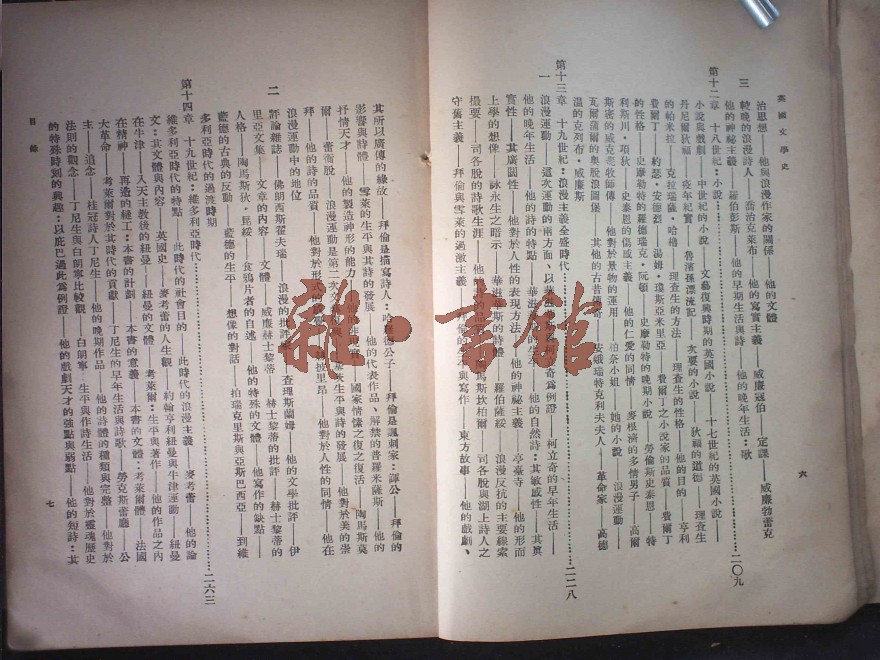 英國文學史
六
治思想——他與浪漫作家的關係——他的文體
三 較晚的浪漫詩人——喬治克萊布——他的寫實主義——威廉寇伯——定課——威廉勃雷克
他的神祕主義——羅伯彭斯——他的早期生活與詩——他的晚年生活：歌
第十二章 十八世紀：小說………二〇九
小說與戲劇——中世紀的小說——文藝復興時期的英國小說——十七世紀的英國小說——
丹尼爾狄福——疫年紀實——魯濱孫漂流記——次要的小說——狄福的道德——理查生
的帕米拉——克拉瑞薩·哈樓——理查生的方法——理查生的性格——他的目的——亨利
費爾丁——約瑟·安德魯——湯姆·瓊斯——亞米里亞——費爾丁之小說家的品質——費爾丁
的性格——史摩勒特的羅德瑞克·阮頓——史摩勒特的晚期小說——勞倫斯史泰恩——特
利斯川·項狄——史泰恩的傷感主義——他的仁愛的同情——麥根濟的多情男子——高爾
斯密的威克斐牧師傳——他對於景物的運用——柏奈小姐——她的小說——浪漫運動——
瓦爾蒲爾的奧股浪圖堡——其他的古昔傳奇——安娥瑞特克利夫夫人——革命家——高德
溫的克列布·威廉斯
第十三章 十九世紀：浪漫主義全盛時代………二二八
一 浪漫運動——這次運動的兩方面、以華
奇為例證——柯立奇的早年生活——
他的晚年生活——他的詩的特點——華
他的自然詩：其敏感性——其真
實性——其廣闊性——他對於人性的表現方法——他的神祕主義——
亭臺寺——他的形面
上學的想像——詠永生之暗示——華
斯的詩體——羅伯薩綏——浪漫反抗的主要線索
撮要——司各股的詩歌生涯——他
馬斯坎柏爾——司各股與湖上詩人之
守舊主義——拜倫與雪萊的過激主義——
與寫作——東方故事——他的戲劇、
其所以廣傳的緣故——拜倫是描寫詩人：哈
德公子——拜倫是諷刺家：諢公——拜倫的
影響與詩體——雪萊的生平與其詩的發展——他的代表作品、解禁的普羅米薩斯——他的
抒情天才——他的製造神形的能力——他
非現實——國家情愫之復之復活——陶馬斯莫
爾——蕾衛股——浪漫運動是第二次文
次生平與詩的發展——他對於美的崇
拜——他的詩的品質——他對於形式的
披里昂——他對於人性的同情——他在
浪漫運動中的地位
二 評論雜誌——佛朗西斯霍夫瑞——浪漫的批評
查理斯蘭姆——他的文學批評——伊
里亞文集——文章的內容——文體——威廉赫士黎蒂——赫士黎蒂的批評——赫士黎蒂的
人格——陶馬斯狄·昆綏——食鴉片者的自述——他的特殊的文體——他寫作的缺點——
藍德的古典的反動——藍德的生平——想像的對話——柏瑞克里斯與亞斯巴西亞——到維
多利亞時代的過渡時期
第十四章 十九世紀：維多利亞時代………二六三
維多利亞時代的特點——此時代的社會目的——此時代的浪漫主義——麥考蕾——他的論
文：其文體與內容——英國史——麥考蕾的人生觀——約翰亨利紐曼與牛津運動——紐曼
在牛津——入天主教後的紐曼——紐曼的文體——考萊爾：生平與著作——他的作品之內
在精神——再造的縫工：本書的計劃——本書的意義——本書的文體：考萊爾體——法國
大革命——考萊爾對於其時代的貢獻——丁尼生的早年生活與詩歌——勞克斯蕾廳——公
主——追念——桂冠詩人丁尼生——他的晚期作品——他的詩體的種類與完整——他對於
法則的觀念——丁尼生與白朗寧比較觀——白朗寧——生平與作詩生活——他對於靈魂歷史
的特殊時刻的興趣：以庇巴過此為例證——他的戲劇天才的強點與弱點——他的短詩：其
目錄
七
雜·書館